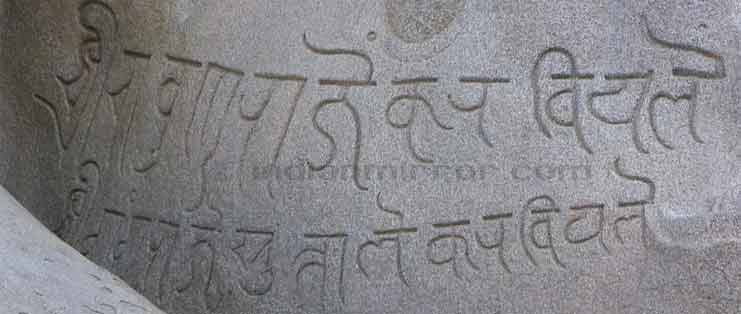 श्रीचावुण्डराजें करवियलें
indianmirror.com
श्रीगंगराजे सुत्ताले करवियले